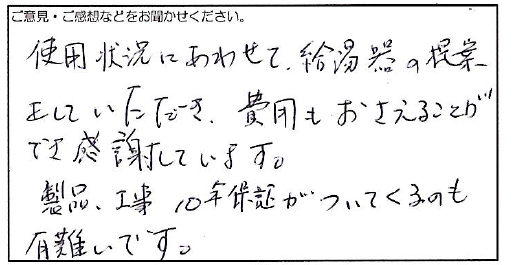 ご意見・ご感想などをお聞かせください。
使用状況にあわせて、給湯器の提案
をしていただき、費用もおさえることが
でき感謝しています。
製品、工事10年保証がついてくるのも
有難いです。